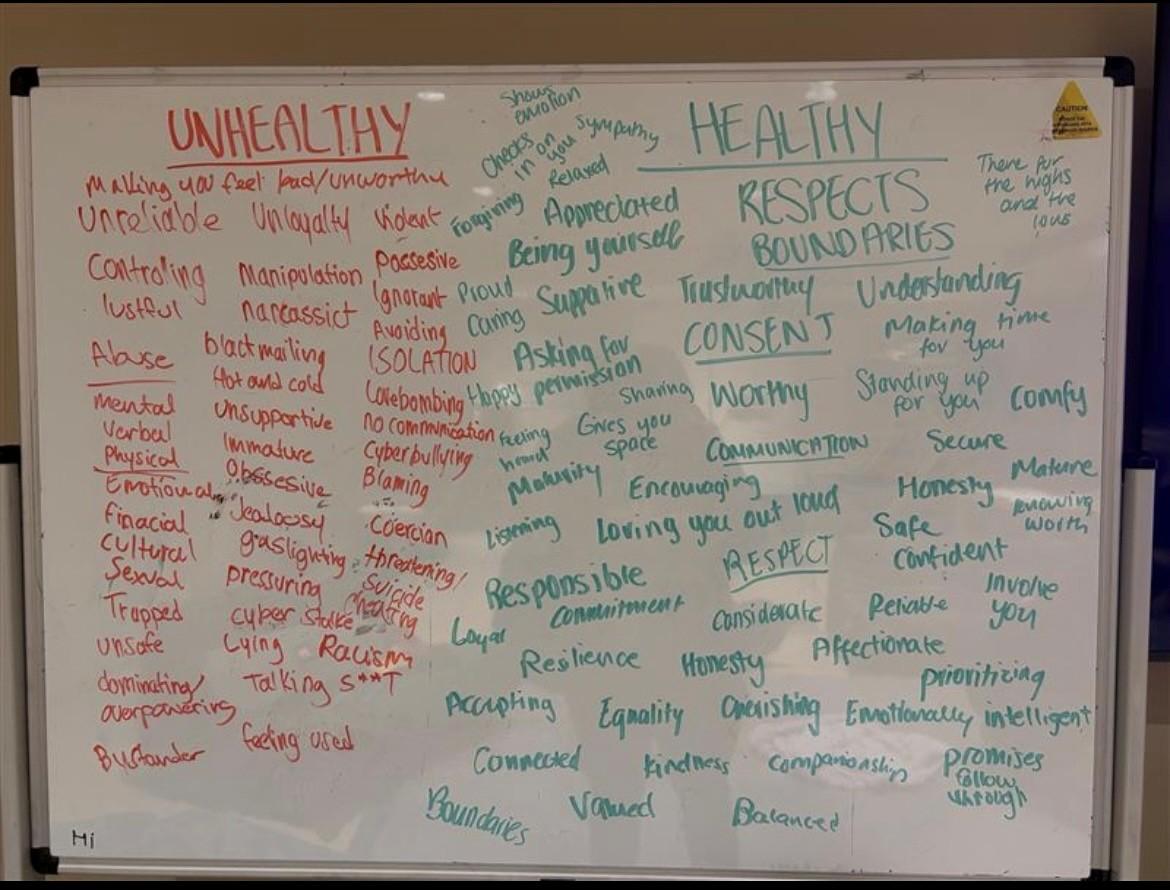 UNHEALTHY
Making you feel bad/unworthy
Unreliable Unloyalty Violent
Controling Manipulation Possesive
lustful narcassict Ignorant
Avoiding
Abuse blackmailing ISOLATION
Hot and cold Lovebombing
mental unsupportive no communication
Verbal Immature Cyberbullying
Physical Obssesive Blaming
Emotional
Finacial Jealopsy Coercian
Cultural gaslighting threatening/
Sexual pressuring Suicide
Trapped cyber stalke
unsafe Lying Racism
dominating/ Talking S**T
overpowering
Bystander feeling used
Hi
Shows
emotion
Checks
in on
you
Sympathy
Relaxed
HEALTHY
CAUTION
There for
the highs
and the
lows
Forgiving Appreciated RESPECTS
Being yourself BOUNDARIES
Proud Supportive Trustworthy Understanding
Caring
CONSENT Making time
for you
Asking for
permission
Happy Sharing Worthy Standing up
for you Comfy
feeling
heard
Gives you
space
COMMUNICATION Secure
Maturity Encouraging Honesty Mature
Knowing
worth
Listening Loving you out loud Safe
Confident
RESPECT
Responsible Involve
you
Commitment Considerate Reliable
Loyal
Resilience Honesty Affectionate
prioritizing
Accepting Equality Cherishing Emotionally intelligent
Connected kindness companionship promises
follow
through
Boundaries Valued Balanced